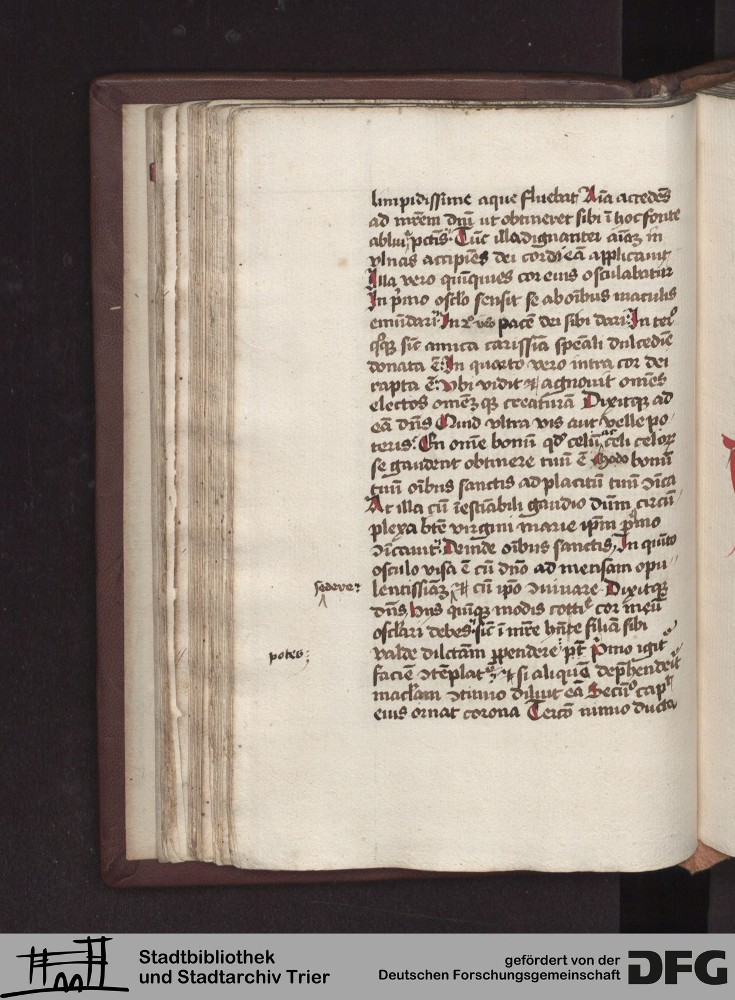 limpidissime aque fluebat Aīa accedēs
ad mr̄em dnī ut obtineret sibi ī hoc fonte
ablui pctīs Tūc illa dignanter aīaȝ in
vlnas accipiēs dei cordi eā applicauit
Illa vero quīquies cor eius osculabatur
In pͥmo osclo sensit se ab oībus maculis
emūdari In 2º vͦ pacē dei sibi dari In tercͦ
qͣsi sic amica carissīa spēali dulcedīe
donata ē In quarto vero intra cor dei
rapta ē vbi vidit et agnouit om̄es
electos om̄ēqȝ creaturā Dixitqȝ ad
eā dn̄s Quid vltra vis aut velle po
teris En om̄e bonū qd celū ac celi celoꝝ
se gaudent obtinere tuū ē Modo bonū
tuū oībus sanctis ad placitū tuū ↄīca
At illa cū īestīabili gaudio dn̄m circū
plexa bt̄e virgini marie ipm̄ pͥmo
ↄīcauit Deinde oībus sanctis In quīto
osculo visa ē cū dn̄o ad mensam opu
sedere
lentissiāȝ et cū ipo ↄuiuare Dixitqȝ
dn̄s hiis quīqȝ modis cottiͤ cor meū
osclari debes sic ī mr̄e
potes
valde dilctām ꝑpendere pͥmo igit
faciē ↄtēplatͬ et si aliquā dep̄hendeͥt
maclam ↄtinuo diluit eā Secūͦ capͧ
eius ornat corona Tercō nimio ducta
Stadtbibliothek
und Stadtarchiv Trier
gefördert von der
Deutschen Forschungsgemeinschaft
DFG